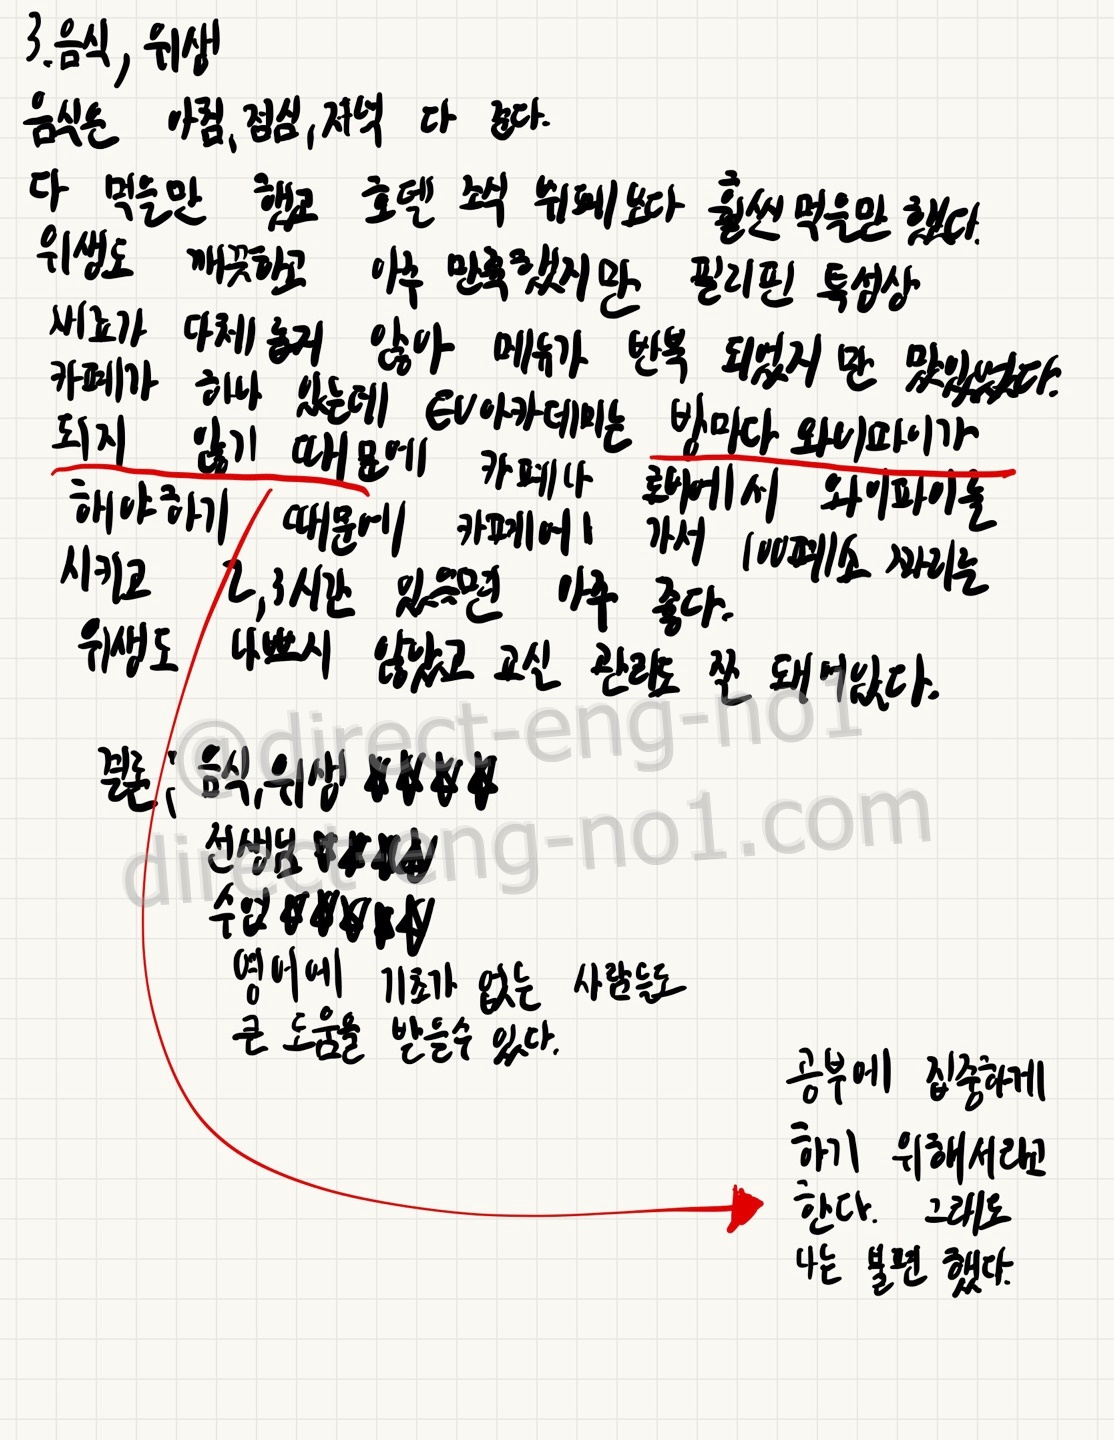 3. 음식, 위생
음식은 아침, 점심, 저녁 다 준다.
다 먹을만 했고 호텔 조식 뷔페보다 훨씬 먹을만 했다.
위생도 깨끗하고 아주 만족했지만 필리핀 특성상
채소가 다채롭지 않아 메뉴가 반복 되었지만 맛있었다.
카페가 하나 있는데 EV아카데미는 방마다 와이파이가
되지 않기 때문에 카페나 로비에서 와이파이를
해야하기 때문에 카페에 가서 100페소 짜리는
시키고 2,3시간 있으면 아주 좋다.
위생도 나쁘지 않았고 교실 관리도 잘 돼어있다.
@direct-eng-no1
결론: 음식, 위생 ★★★★
direct-eng-no1.com
선생님 ★★★★
수업 ★★★★★
영어에 기초가 없는 사람들도
큰 도움을 받을수 있다.
공부에 집중하게
하기 위해서라고
한다. 그래도
나는 불편 했다.